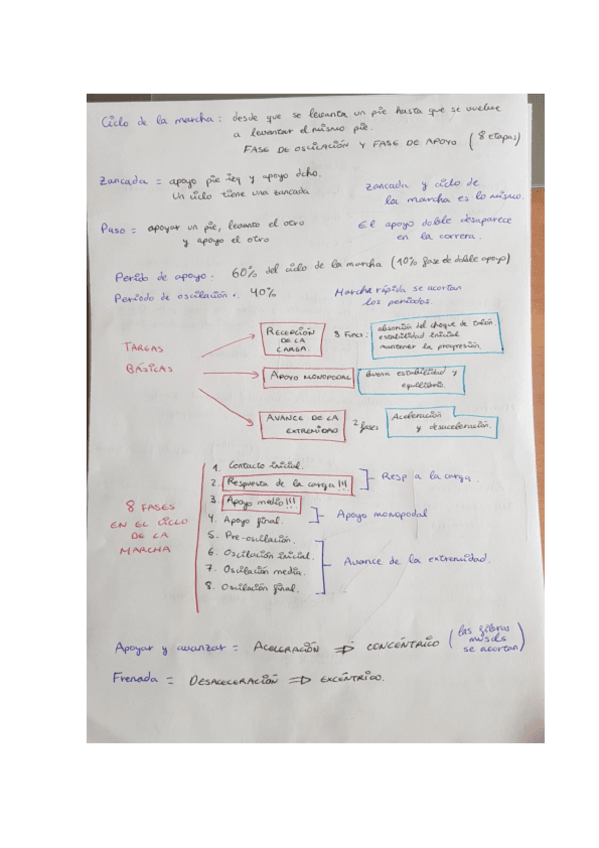 Ciclo de la marcha: desde que se levanta un pie hasta que se vuelve
a levantar el mismo pie.
FASE DE OSCILACIÓN Y FASE DE APOYO (8 etapas)
Zancada = apoyo pie izq y apoyo dcho.
Un ciclo tiene una zancada
Zancada y ciclo de
la marcha es lo mismo.
Paso = apoyar un pie, levanto el otro
y apoyo el otro
El apoyo doble desaparece
en la carrera.
Periodo de apoyo. 60% del ciclo de la marcha (10% fase de doble apoyo)
Periodo de oscilación. 40%
Marcha rápida se acortan
los periodos.
TAREAS
BÁSICAS
RECEPCIÓN
DE LA
CARGA.
3 Func:
absorción del choque de talón.
estabilidad inicial
mantener la progresión.
APOYO MONOPODAL
Buena estabilidad y
equilibrio.
AVANCE DE LA
EXTREMIDAD
2 fases
Aceleración
y desaceleración.
8 FASES
EN EL CICLO
DE LA
MARCHA
1. Contacto inicial.
2. Respuesta de la carga!!!
3. Apoyo medio!!!
4. Apoyo final.
5. Pre-oscilación.
6. Oscilación inicial.
7. Oscilación media.
8. Oscilación final.
Resp a la carga.
Apoyo monopodal
Avance de la extremidad.
Apoyar y avanzar = ACELERACIÓN ⇒ CONCÉNTRICO (las fibras
se acortan)
Frenada = DESACELERACIÓN ⇒ EXCÉNTRICO.